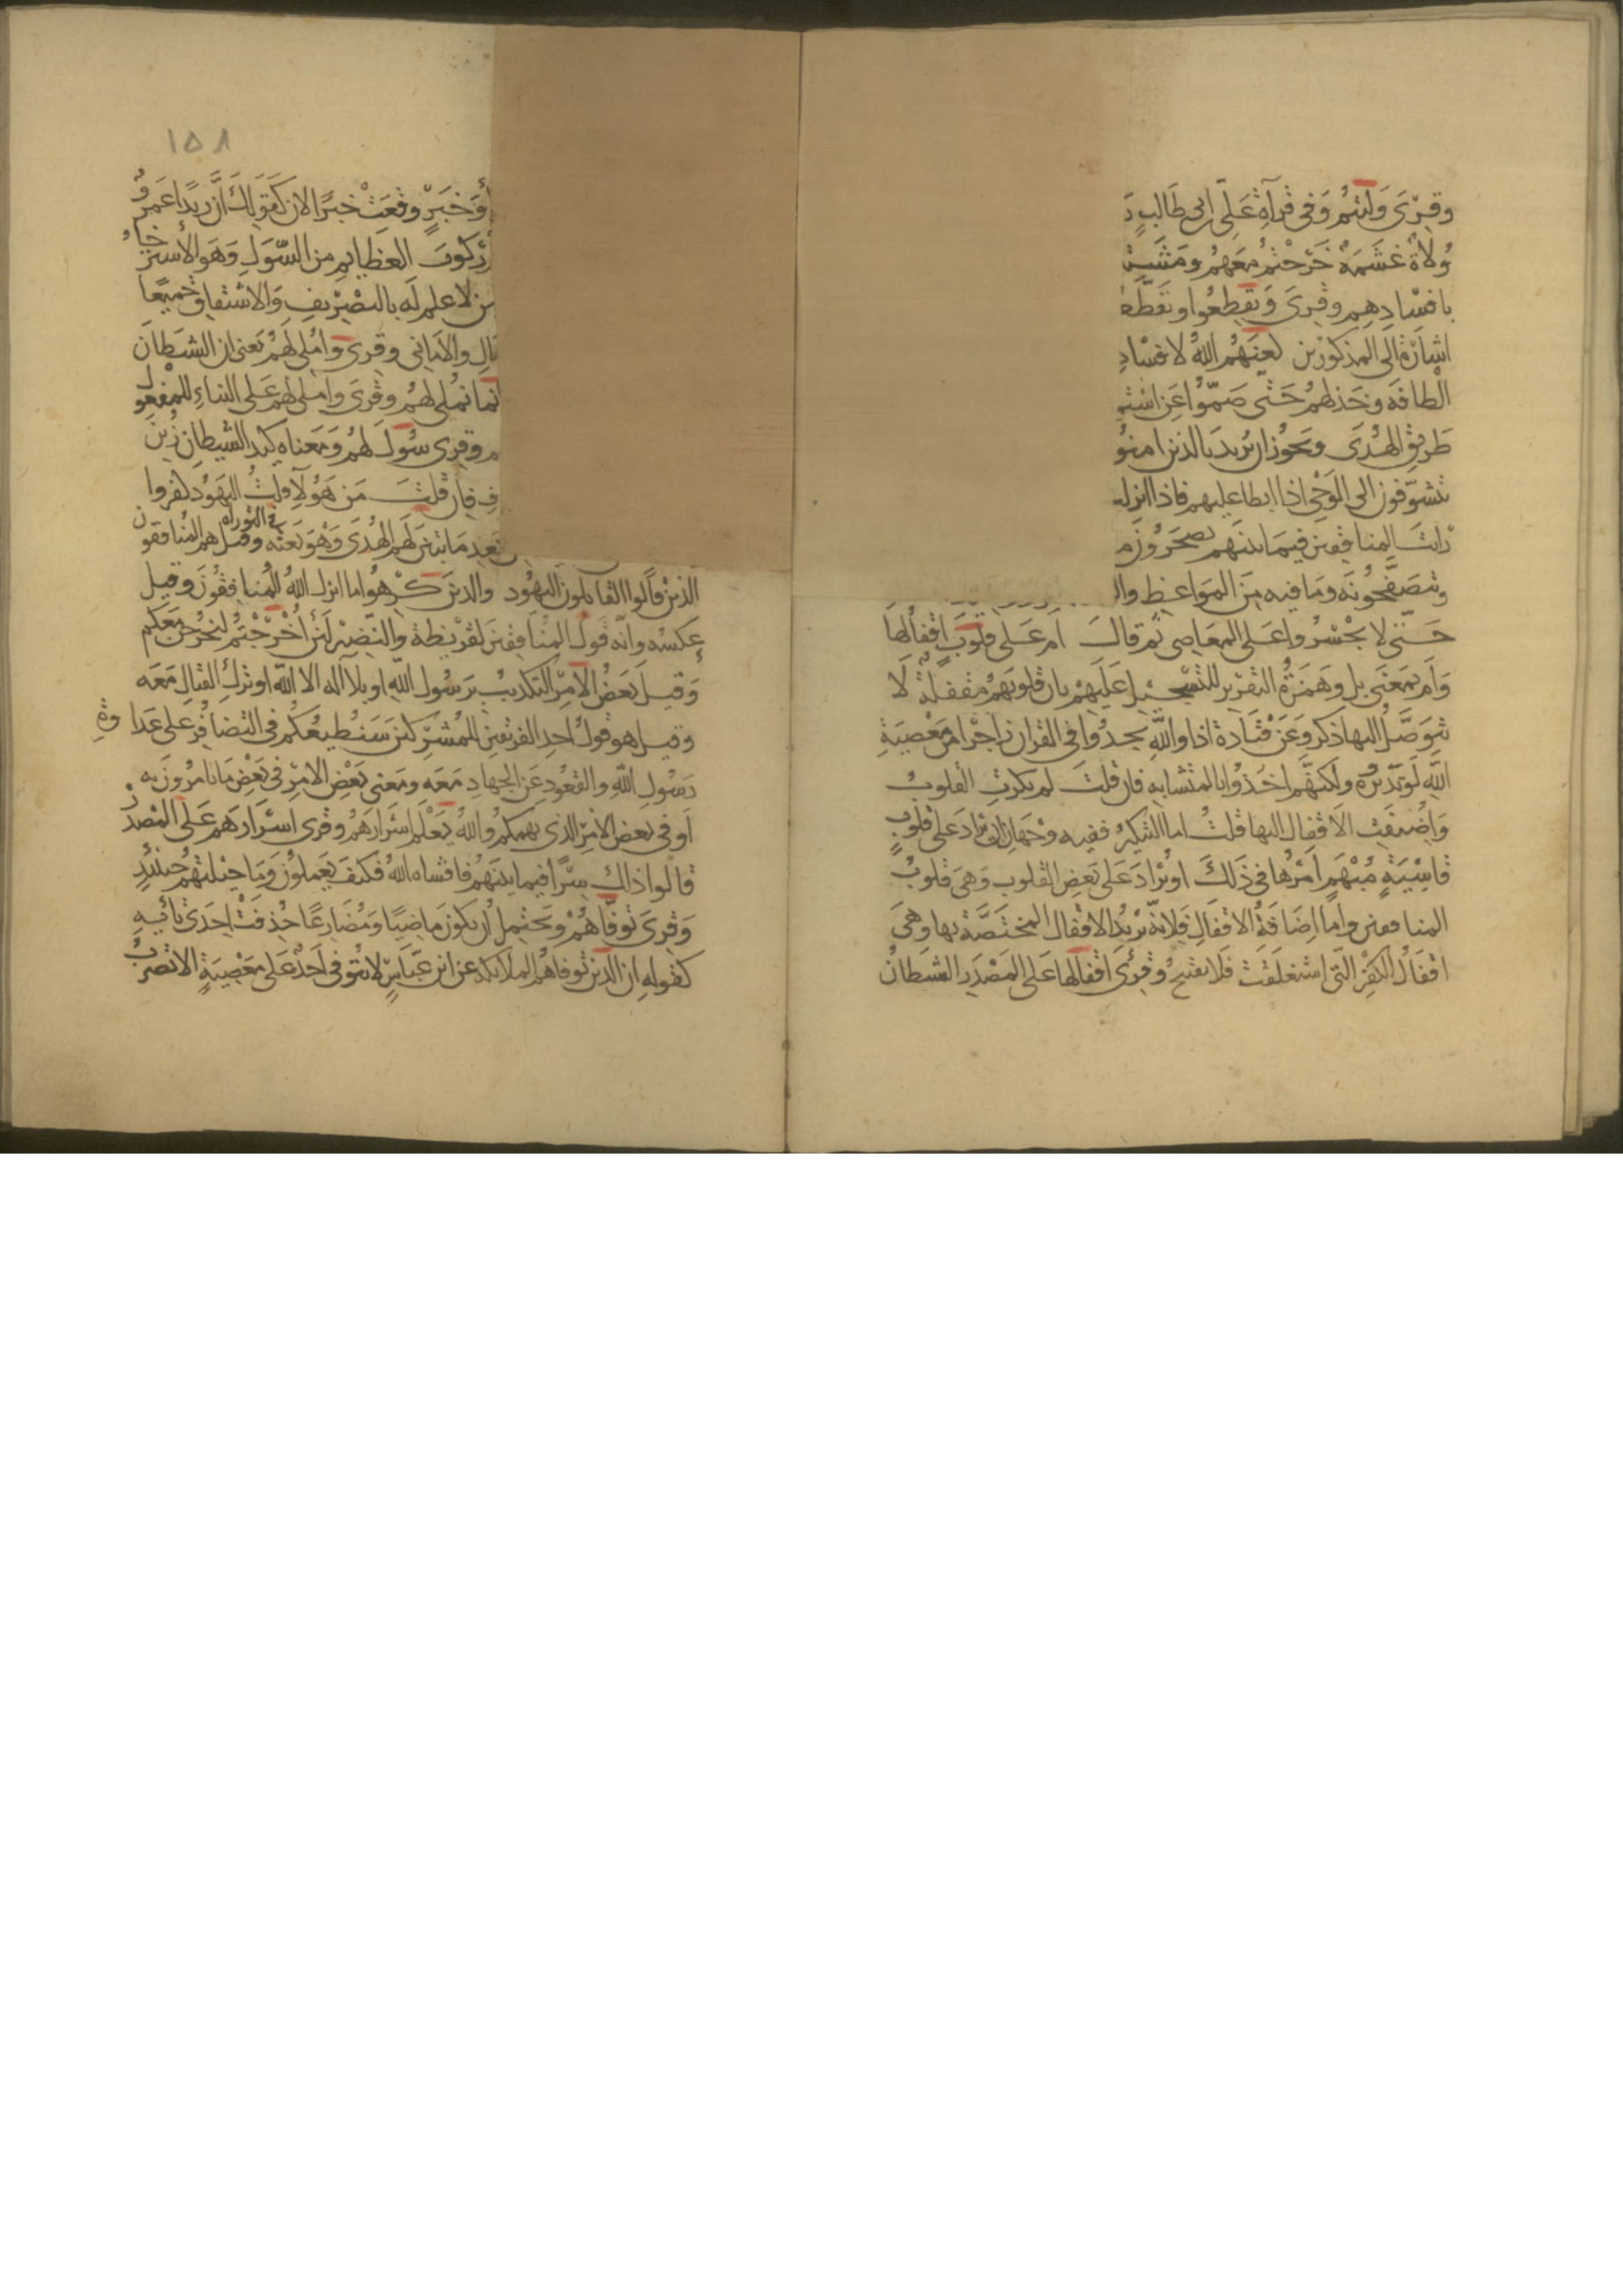 وقرئ وليتم وفى قرآة على ابن ابى طالب
ولاة غشمة خرجتم معهم ومشيتـ
بافسادهم وقرى وتقطعوا وتقطعـ
اشارة الى المذكورين لعنهم الله لافساد
الطافه وخذلهم حتى صموا عن استمـ
طريق الهدى ويجوز ان يريد بالذين امنو
تشوفون الى الوحى اذا ابطا عليهم فاذا انزلـ
رايت المنافقين فيما بينهم يضجرون
وتتصفحونه وما فيه من المواعظ والـ
حتى لا يجسروا على المعاصى ثم قال ام على قلوب اقفالها
وام بمعنى بل وهمزة التقرير للتسجيل عليهم بان قلوبهم مقفلة لا
يتوصل اليها ذكر وعن قتادة اذا والله يجدوا فى القران زاجرا من معصية
الله لو تدبروه ولكنهم اخذوا بالمتشابه فان قلت لم نكرت القلوب
واضيفت الاقفال اليها قلت اما التنكير ففيه وجهان ان يراد على قلوب
قاسية مبهم امرها فى ذلك او يراد على بعض القلوب وهى قلوب
المنافقين واما اضافة الاقفال فلانه يريد الاقفال المختصة بها وهى
اقفال الكفر التى استغلقت فلا تفتح وقرئ اقفالها على المصدر الشيطان
١٥٨
أو خبر وقعت خبرا لان كقولك ان زيدا عمرو
ركوب العظايم من السول وهو الاسترخاء
من لا علم له بالتصريف والاشتقاق جميعا
ـال والامانى وقرى وأملى لهم يعنى ان الشيطان
انما نملى لهم وقرى واملى لهم على البناء للمفعول
م وقرى سول لهم ومعناه كيد الشيطان زين
ـف فان قلت من هولآ قلت اليهود كفروا
بعد ما تبين لهم الهدى وهو نعته فى التوراه وقيل هم المنافقون
الذين قالوا القائلون اليهود والذين كرهوا ما انزل الله المنافقون وقيل
عكسه وانه قول المنافقين لقريظة والنضير لئن أخرجتم لنخرجن معكم
وقيل بعض الامر التكذيب برسول الله او بلا اله الا الله او ترك القتال معه
وقيل هو قول احد الفريقين للمشركين سنطيعكم فى التضافر على عداوة
رسول الله والقعود عن الجهاد معه ومعنى بعض الامر فى بعض ما تامرون به
أو فى بعض الامر الذى يهمكم والله يعلم اسرارهم وقرى اسرارهم على المصدر
قالوا ذلك سرا فيما بينهم فافشاه الله فكيف يعملون وما حيلتهم حينئذ
وقرى توفاهم ويحتمل أن يكون ماضيا ومضارعا حذفت احدى تائيه
كقوله ان الذين توفاهم الملائكة عن ابن عباس لا يتوفى احد على معصية الا تضرب